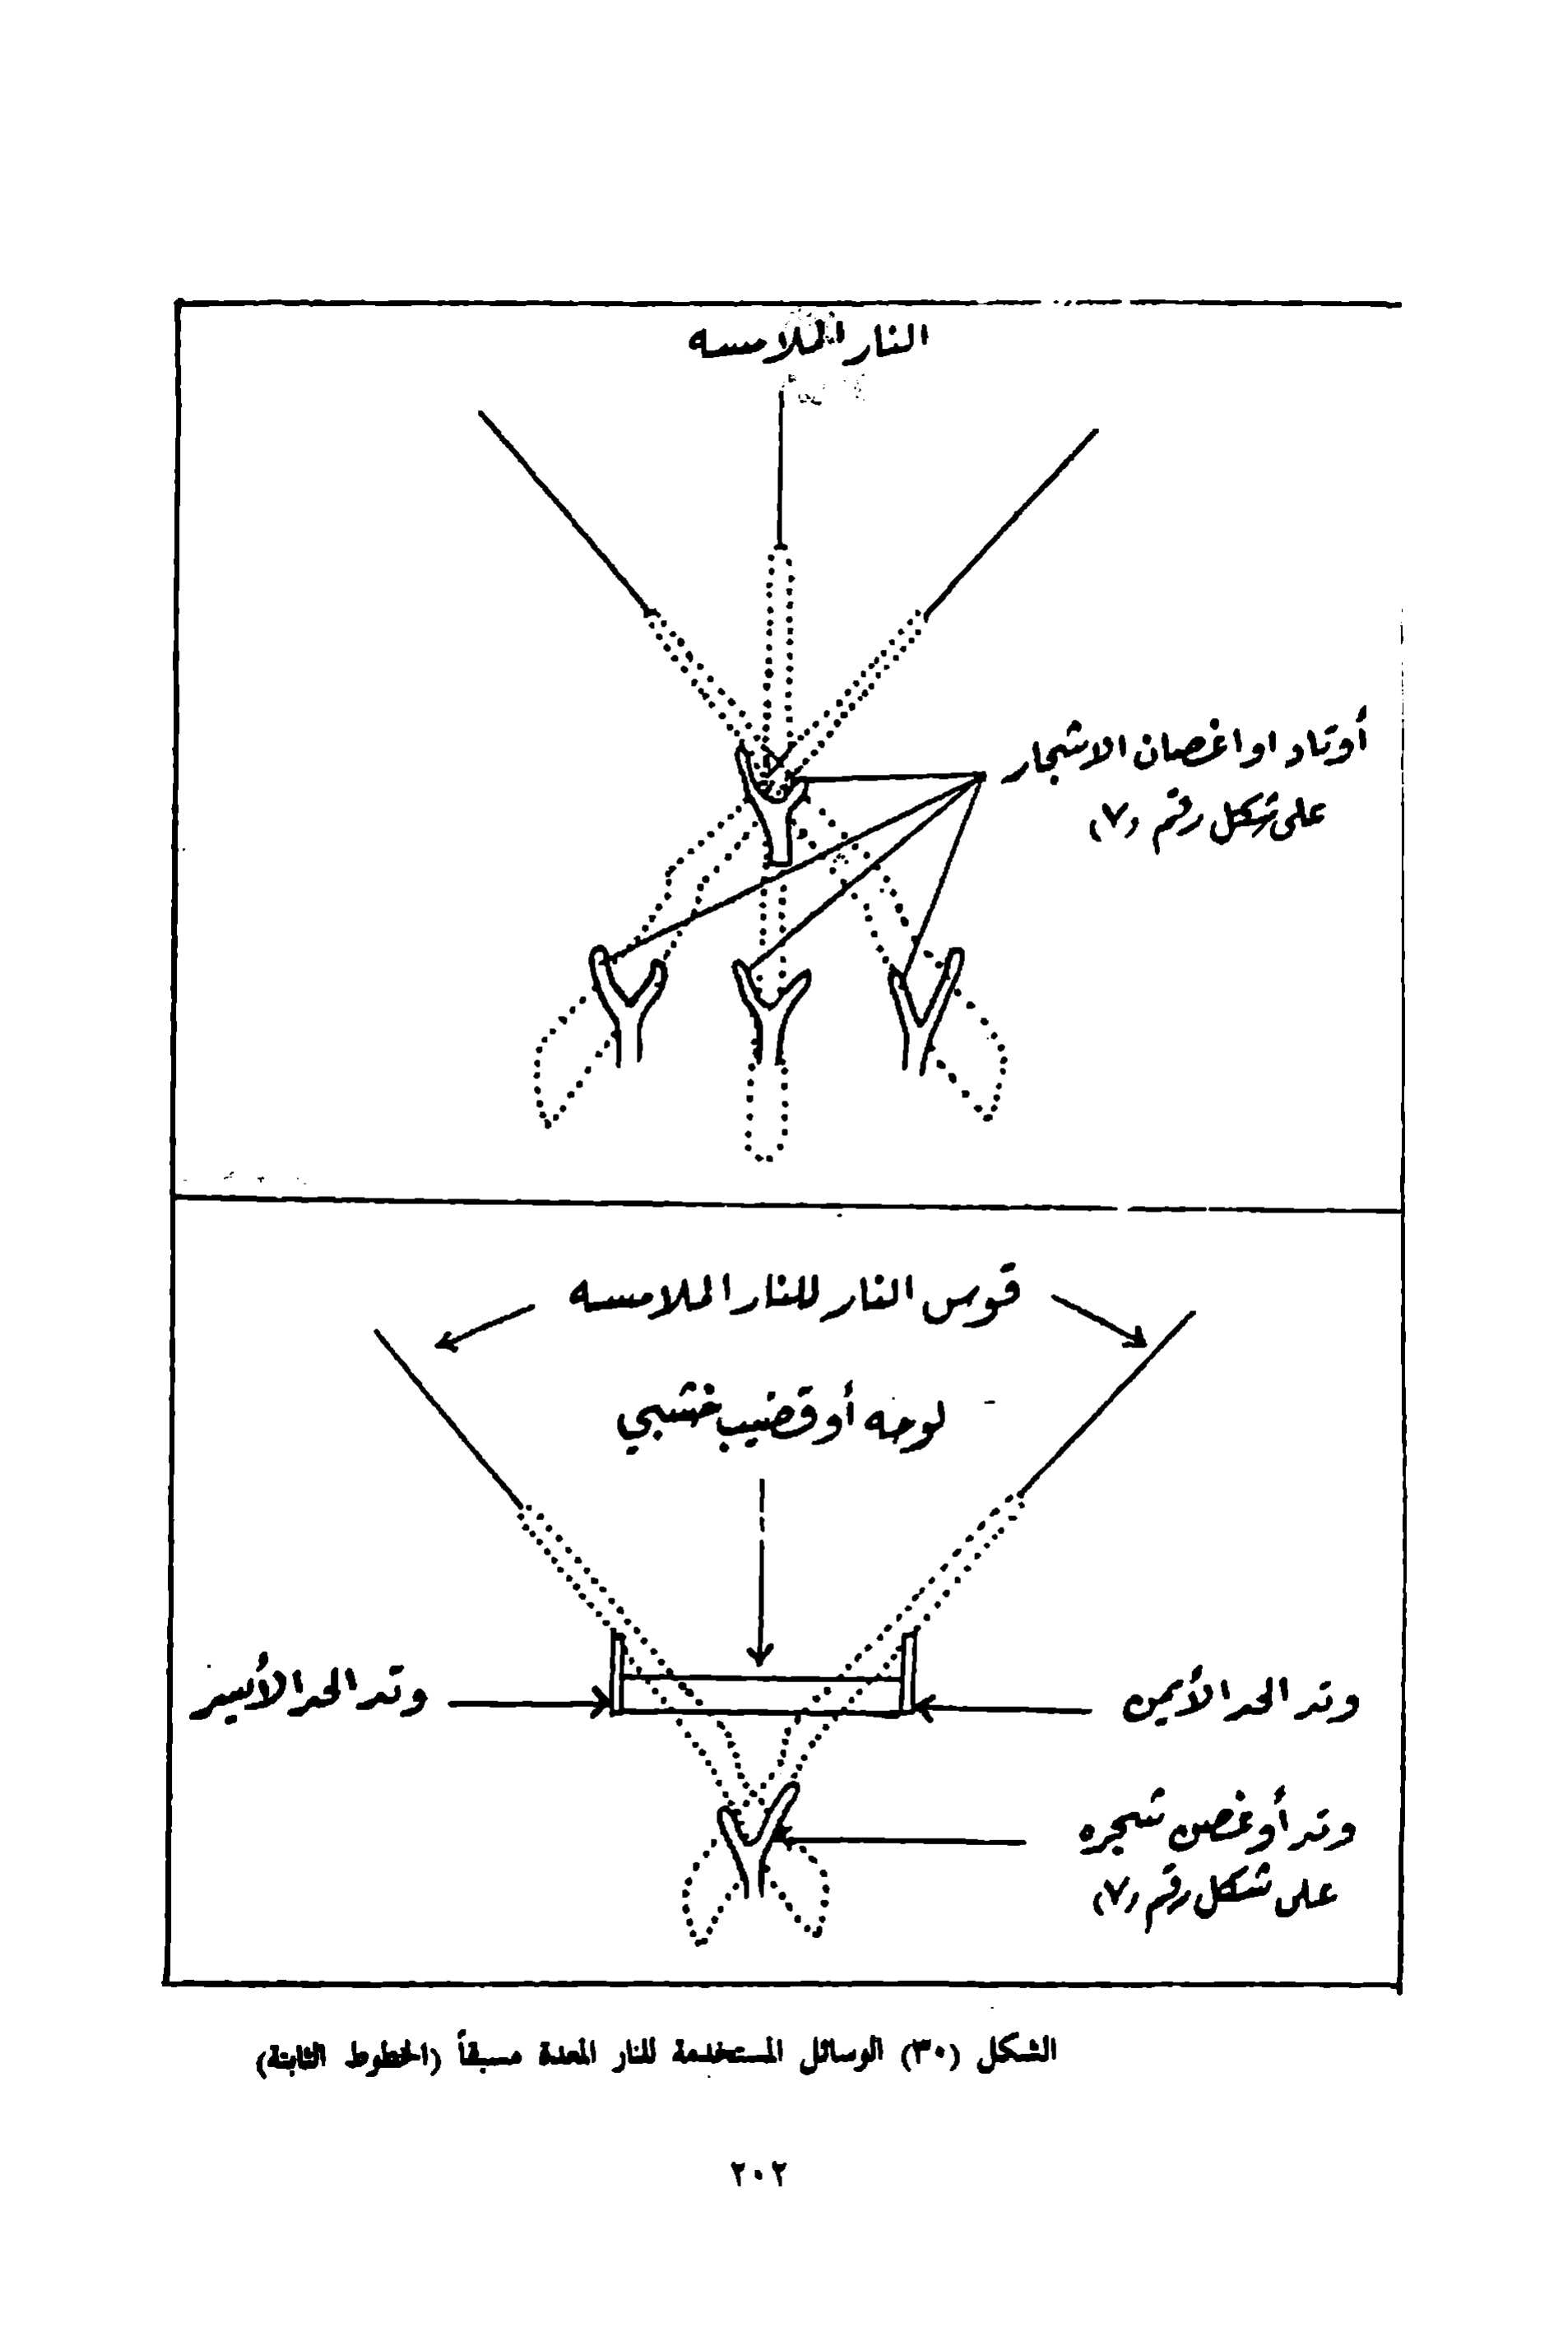 النار الملامسه
أوتاد او اغصان الاشجار
على شكل رقم (٧)
قوس النار للنار الملامسه
لوحه أو قضيب خشبي
وتد الحد الأيسر
وتد الحد الأيمن
وتد أو غصن شجره
على شكل رقم (٧)
الشكل (٣٠) الوسائل المستخدمة للنار المعدة مسبقاً (الخطوط الثابتة)
٢٠٢